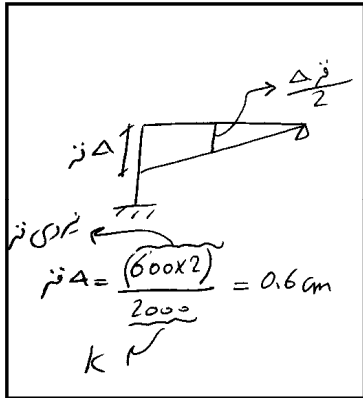 Δ فنر / 2
Δ فنر
نیروی فنر
Δ فنر = (600×2) / 2000 = 0.6 cm
K